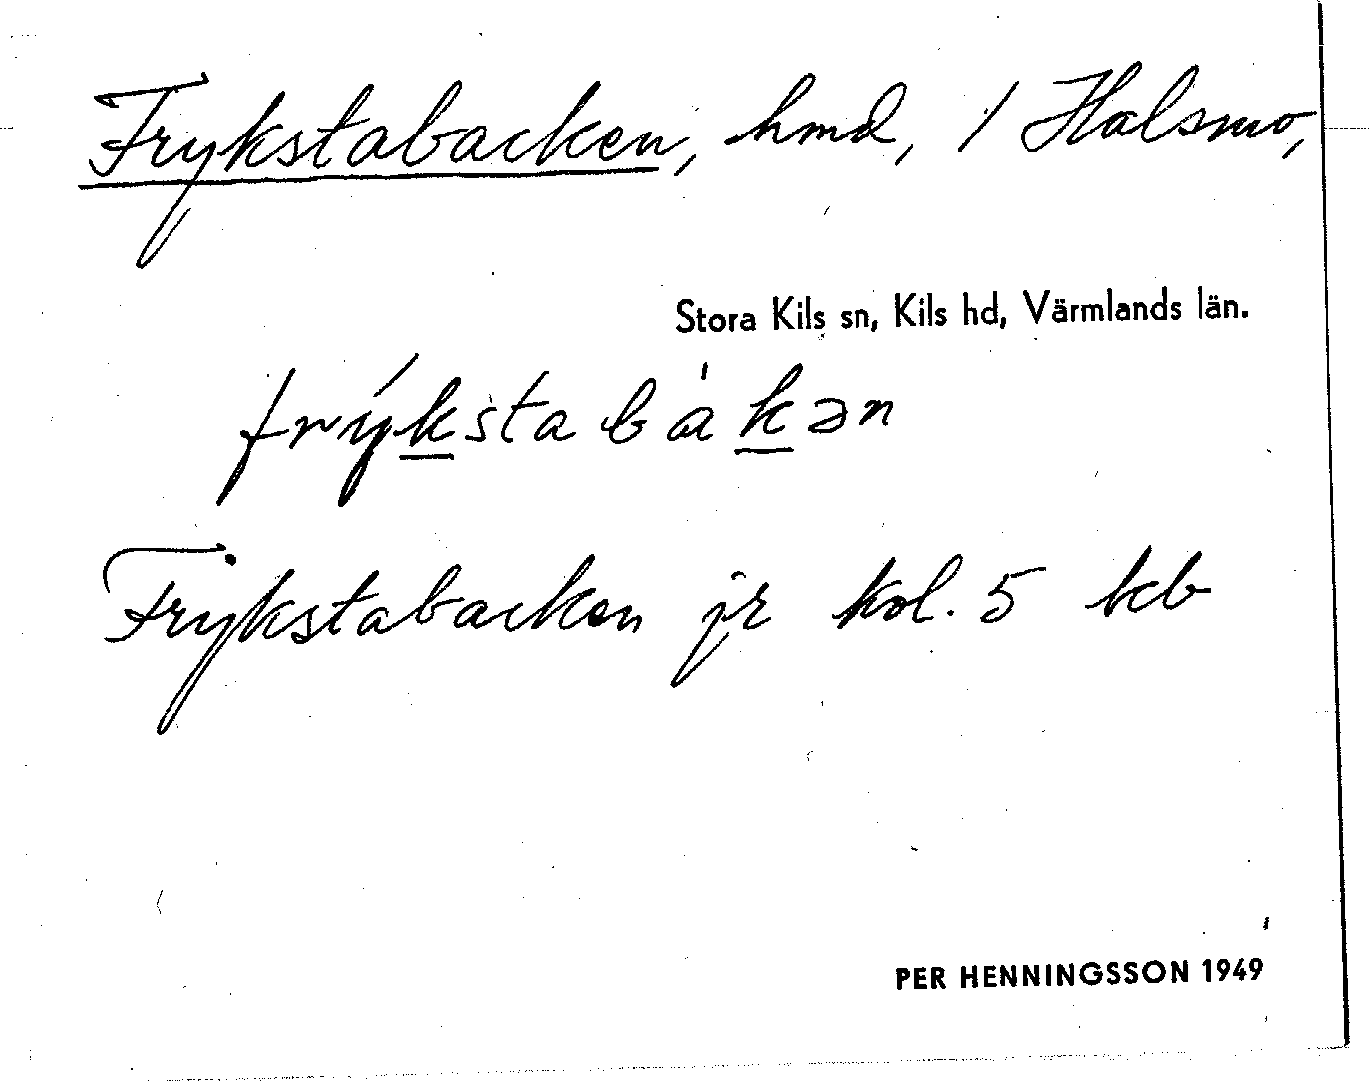 Frykstabacken, hmd, / Halsmo,
Stora Kils sn, Kils hd, Värmlands län.
frýkstabàkən
Frykstabacken jr kol. 5 kb
PER HENNINGSSON 1949